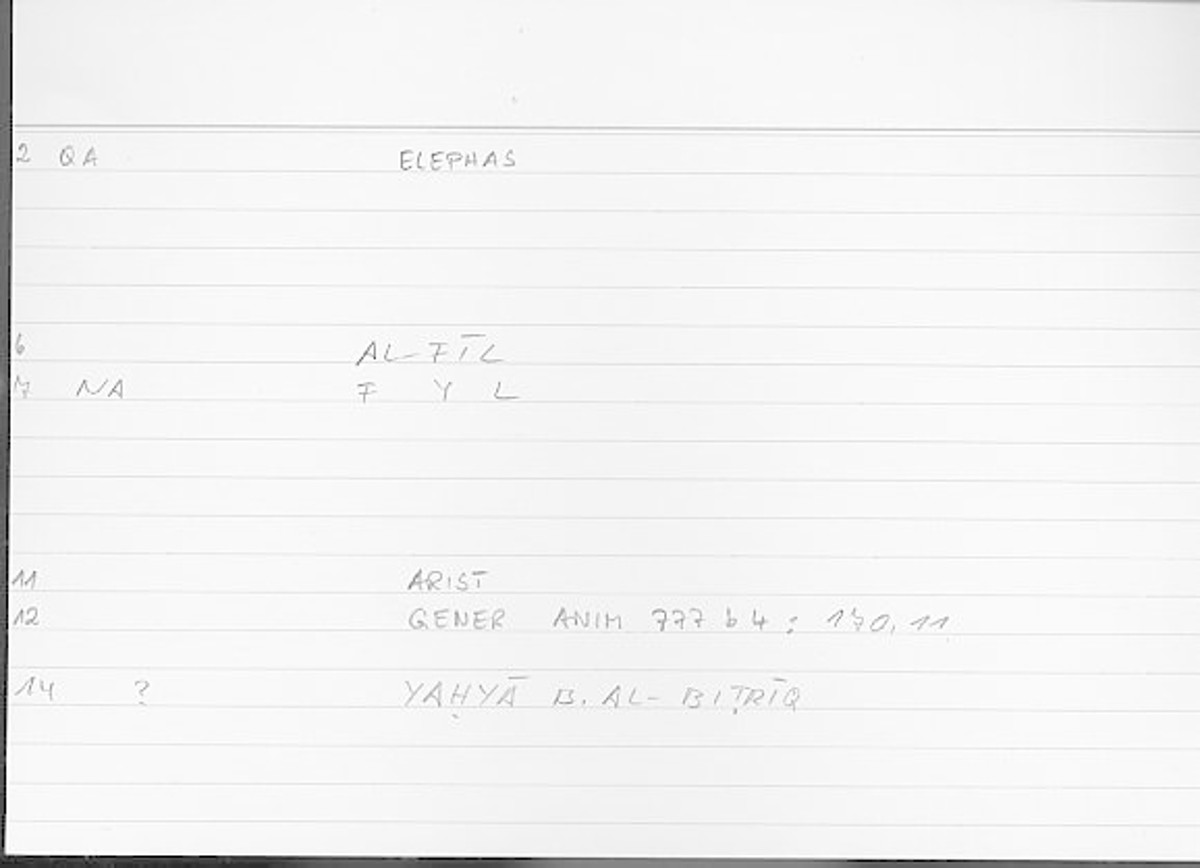 2 QA ELEPHAS
6 AL-FĪL
7 NA F Y L
11 ARIST
12 GENER ANIM 777 b 4 : 170,11
14 ? YAḤYĀ B. AL-BIṬRĪQ